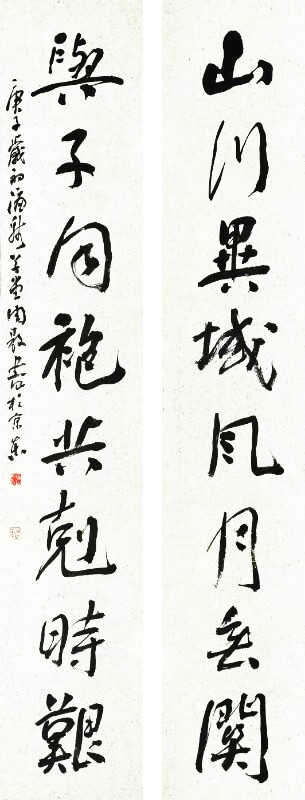 山川異域风月無關
與子同袍共剋時艱
庚子歲初 於京華